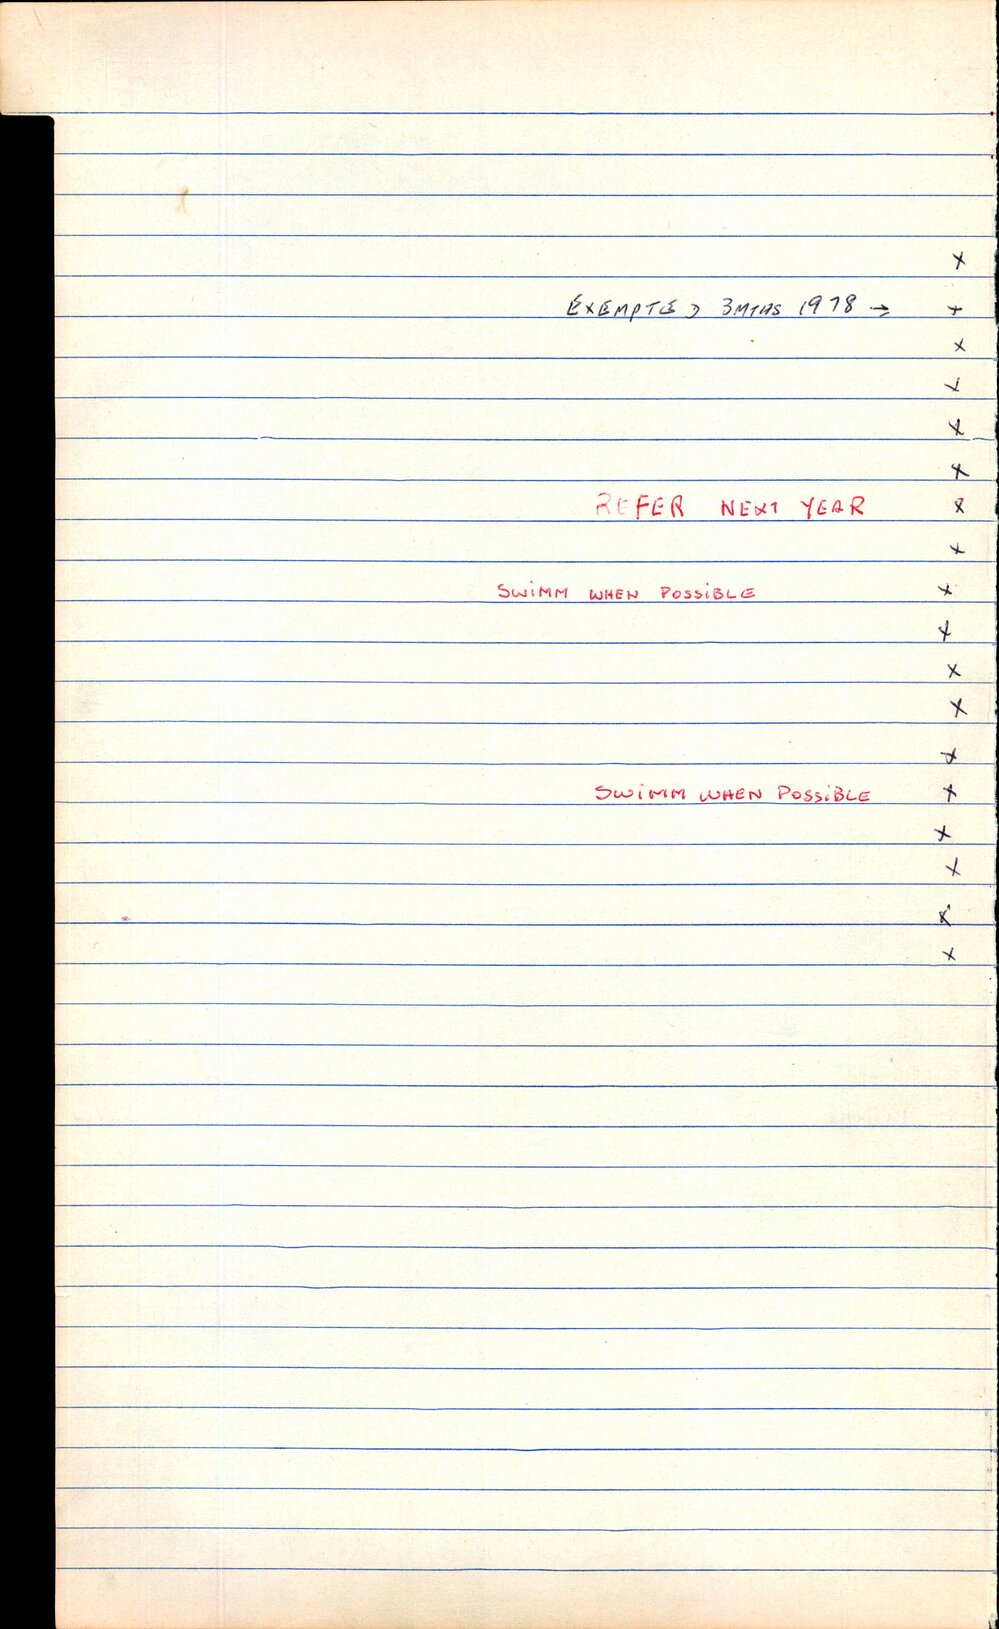 x
EXEMPTED 3MTHS 1978 → x
x
x
x
x
REFER NEXT YEAR x
x
SWIMM WHEN POSSIBLE x
x
x
x
x
SWIMM WHEN POSSIBLE x
x
x
x
x